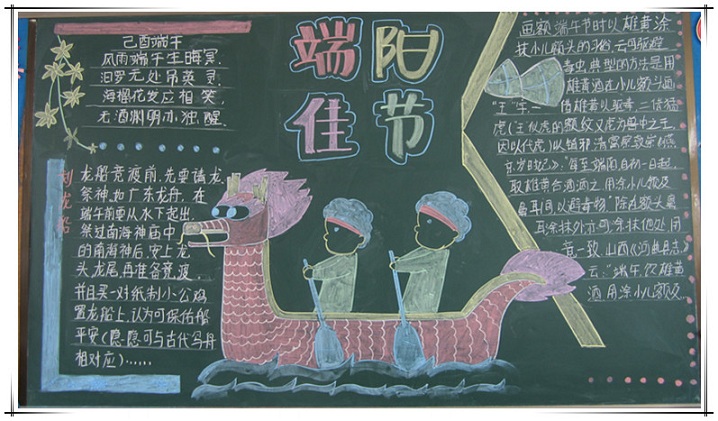 己酉端午
风雨端午生晦冥.
汨罗无处吊英灵.
海榴花发应相笑.
无酒渊明亦独醒.
端阳
佳节
划龙船
龙船竞渡前,先要请龙、
祭神.如广东龙舟,在
端午前要从水下起出,
祭过南海神庙中
的南海神后,安上龙
头、龙尾,再准备竞渡.
并且买一对纸制小公鸡
置龙船上,认为可保佑船
平安(隐隐可与古代鸟舟
相对应)……
画额 端午节时以雄黄涂
抹小儿额头的习俗,云可驱避
毒虫.典型的方法是用
雄黄酒在小儿额头画
"王"字,一借雄黄以驱毒,二借猛
虎("王"似虎的额纹,又虎为兽中之王,
因以代虎)以镇邪.清富察敦崇《燕
京岁时记》:"每至端阳,自初一日起,
取雄黄合酒洒之,用涂小儿额及
鼻耳间,以避毒物."除在额头、鼻
耳涂抹外,亦可涂抹他处,用
意一致.山西《河曲县志》
云:"端午,饮雄黄
酒,用涂小儿额及